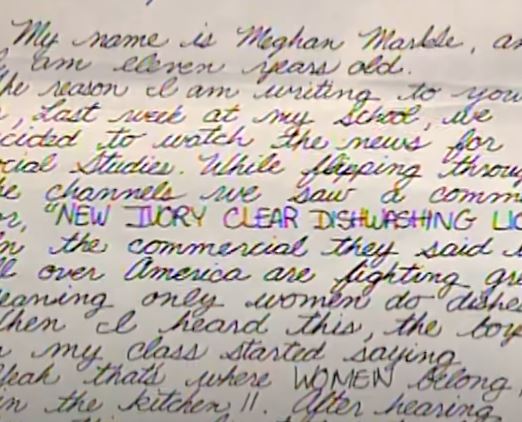 My name is Meghan Markle, an
I am eleven years old.
he reason I am writing to you
, Last week at my school, we
cided to watch the news for
cial Studies. While flipping throug
e channels we saw a comm
or, "NEW IVORY CLEAR DISHWASHING LIQ
n the commercial they said
ll over America are fighting gre
eaning only women do dishe
hen I heard this, the boy
n my class started saying
Yeah thats where WOMEN belong,
in the kitchen!!. After hearing